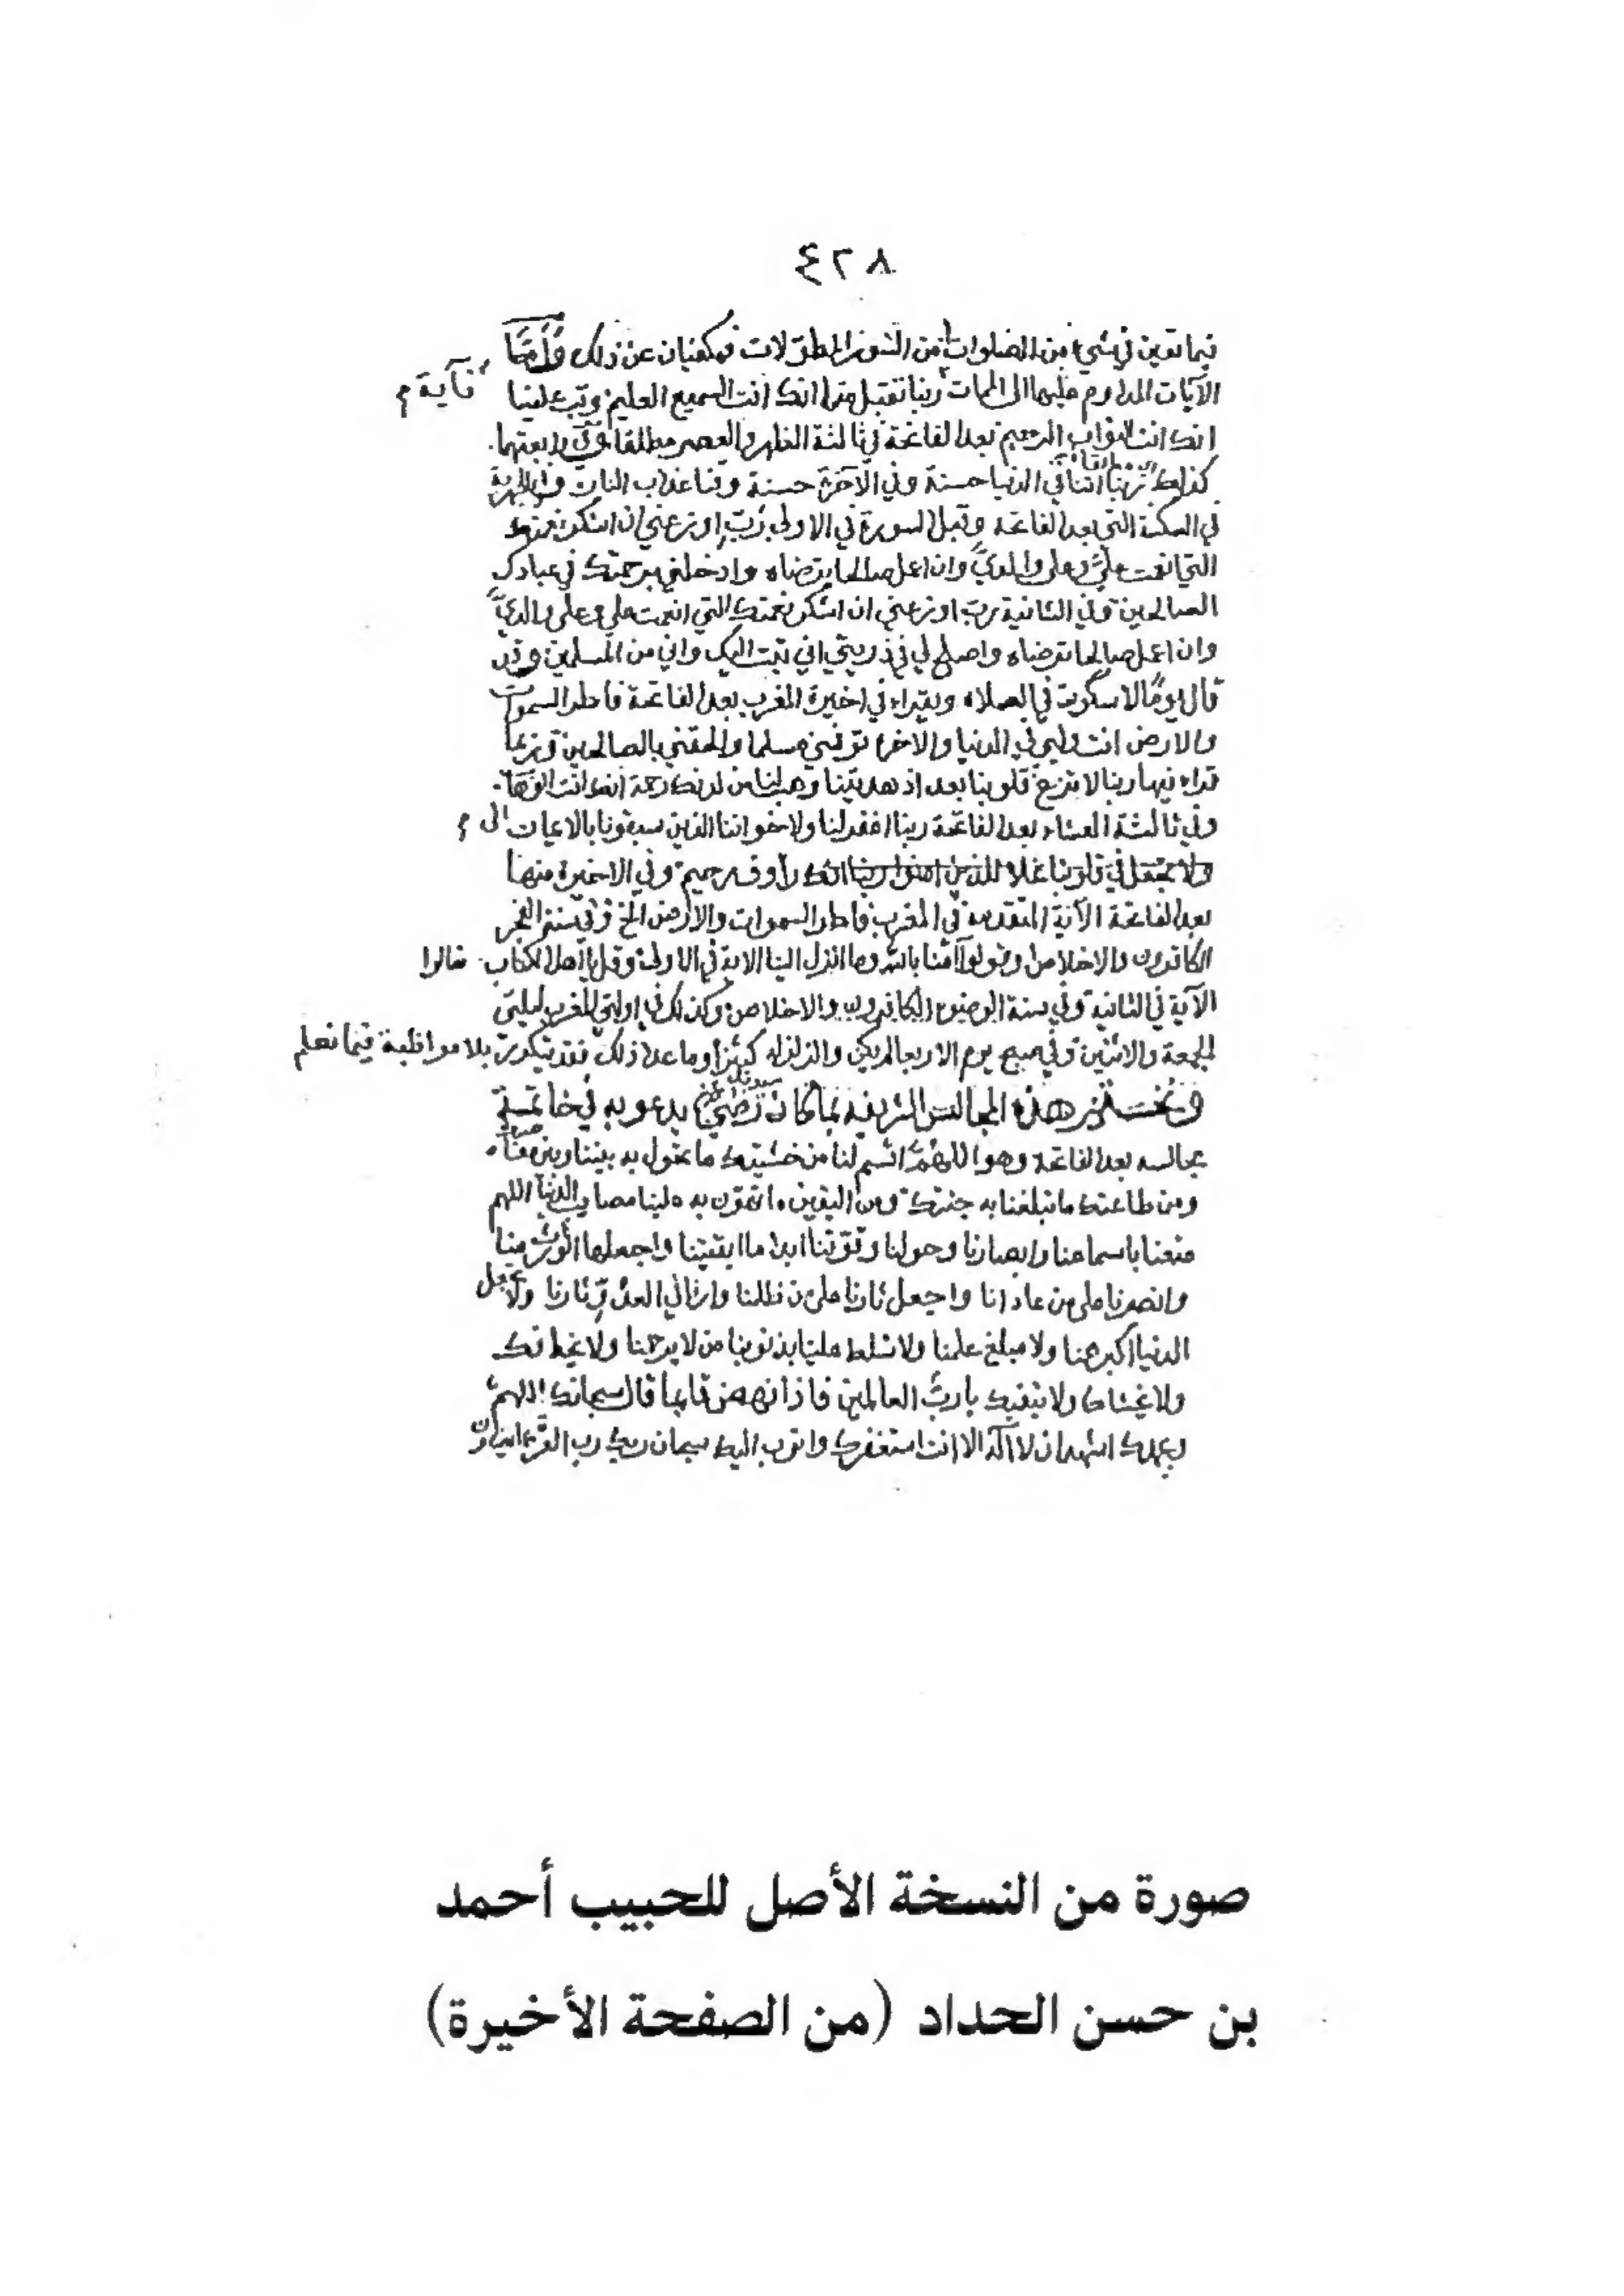 ٤٢٨
فيما تعين في شيء من الصلوات من السور المطولات فيكفيان عن ذلك وأما
الآيات المداوم عليها الى الممات فآية ربنا تقبل منا انك انت السميع العليم وتب علينا
انك انت التواب الرحيم بعد الفاتحة في ثالثة الظهر والعصر مطلقا وفي رابعتهما
كذلك ربنا اتنا في الدنيا حسنة وفي الآخرة حسنة وقنا عذاب النار وفي الجهرية
في السكتة التي بعد الفاتحة وقبل السورة في الاولى رب اوزعني ان اشكر نعمتك
التي انعمت علي وعلى والدي وان اعمل صالحا ترضاه وادخلني برحمتك في عبادك
الصالحين وفي الثانية رب اوزعني ان اشكر نعمتك التي انعمت علي وعلى والدي
وان اعمل صالحا ترضاه واصلح لي في ذريتي اني تبت اليك واني من المسلمين وقد
قال يوما لا سكوت في الصلاة ويقراء في اخيرة المغرب بعد الفاتحة فاطر السموات
والارض انت وليي في الدنيا والاخرة توفني مسلما والحقني بالصالحين وربما
قراء فيها ربنا لا تزغ قلوبنا بعد اذ هديتنا وهب لنا من لدنك رحمة انك انت الوهاب
وفي ثالثة العشاء بعد الفاتحة ربنا اغفر لنا ولاخواننا الذين سبقونا بالايمان الى
ولا تجعل في قلوبنا غلا للذين امنوا ربنا انك رأوف رحيم وفي الاخيرة منها
بعد الفاتحة الآية المتقدمة في المغرب فاطر السموات والارض الخ وفي سنة الفجر
الكافرون والاخلاص وقولوا آمنا بالله وما انزل الينا الاية في الاولى وقل يا اهل الكتاب تعالوا
الآية في الثانية وفي سنة الوضوء الكافرون والاخلاص وكذلك في اولتي المغرب ليلتي
الجمعة والاثنين وفي صبح يوم الاربعا لم يكن والزلزلة كثيرا وما عدا ذلك فقد يتكرر بلا مواظبة فيما نعلم
ولنختم هذه المجالس الشريفة بما كان سيدنا رضي الله عنه يدعو به في خاتمة
مجالسه بعد الفاتحة وهو اللهم اقسم لنا من خشيتك ما تحول به بيننا وبين معاصيك
ومن طاعتك ما تبلغنا به جنتك ومن اليقين ما تهون به علينا مصايب الدنيا اللهم
متعنا باسماعنا وابصارنا وحولنا وقوتنا ابدا ما ابقيتنا واجعلها الوارث منا
وانصرنا على من عادانا واجعل ثارنا على من ظلمنا وارنا في العدو ثارنا ولا تجعل
الدنيا اكبر همنا ولا مبلغ علمنا ولا تسلط علينا بذنوبنا من لا يرحمنا ولا يخافك
ولا يخشاك ولا يتقيك يا رب العالمين فاذا نهض قايما قال سبحانك اللهم
وبحمدك اشهد ان لا اله الا انت استغفرك واتوب اليك سبحان ربك رب العزة عما يصفون
صورة من النسخة الأصل للحبيب أحمد
بن حسن الحداد (من الصفحة الأخيرة)